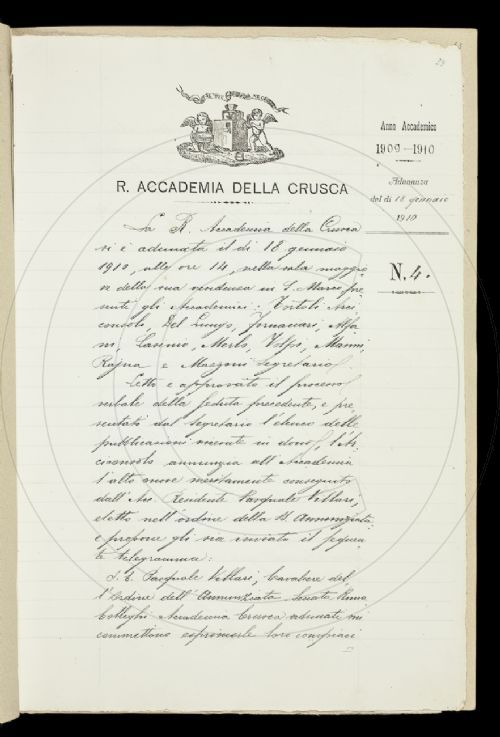 29
R. ACCADEMIA DELLA CRUSCA
Anno Accademico
1909-1910
Adunanza
del dì 18 gennaio
1910
N. 4.
La R. Accademia della Crusca
si è adunata il dì 18 gennaio
1910, alle ore 14, nella sala maggio
re della sua residenza in S. Marco, pre
senti gli Accademici: Tortoli Arci
consolo, Del Lungo, Fornaciari, Alfa
ni, Casini, Merlo, Volpi, Manni,
Rajna e Mazzoni Segretario.
Letto e approvato il processo
verbale della seduta precedente, e pre
sentati dal Segretario l'elenco delle
pubblicazioni ricevute in dono, l'Ar
ciconsolo annunzia all'Accademia
l'alto onore meritamente conseguito
dall'Acc. residente Pasquale Villari,
eletto nell'ordine della SS. Annunziata
e propone gli sia inviato il seguen
te telegramma:
S. E. Pasquale Villari, Cavaliere del
l'Ordine dell'Annunziata Senato Roma
Colleghi Accademia Crusca adunati mi
commettono esprimerle loro compiaci